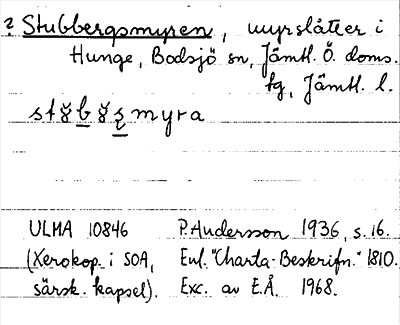 ? Stubbergsmyren, myrslåtter i
Hunge, Bodsjö sn, Jämtl. Ö. doms.
tg, Jämtl. l.
myra
ULMA 10846 P. Andersson 1936, s. 16.
(Xerokop. i SOA, Enl. "Charta-Beskrifn." 1810.
särsk. kapsel). Exc. av E.Å. 1968.